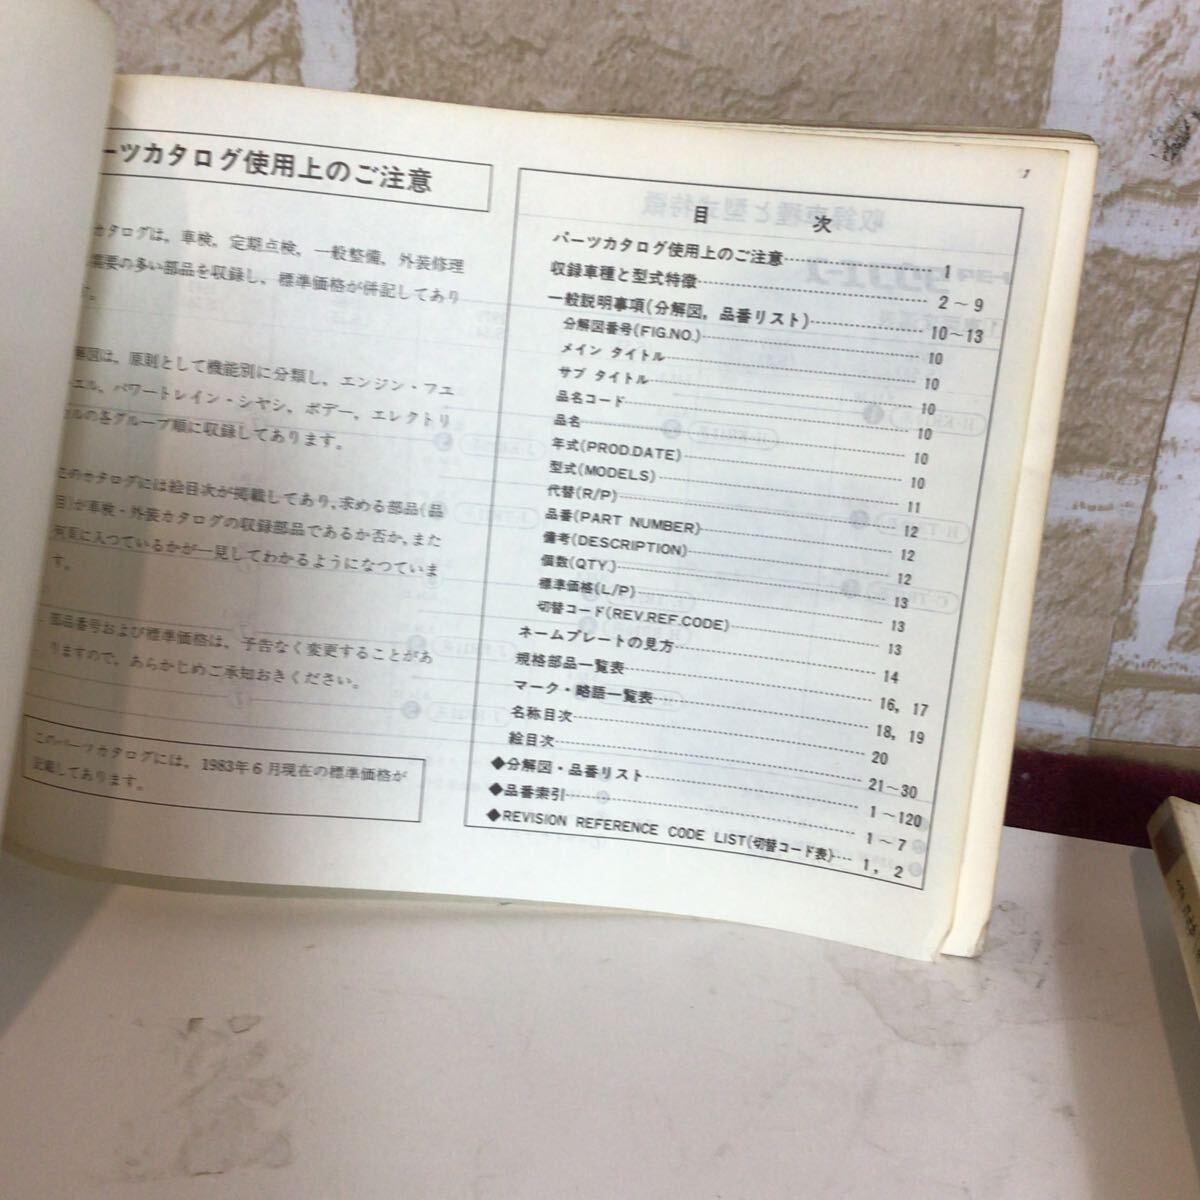 ーツカタログ使用上のご注意
カタログは，車検，定期点検，一般整備，外装修理
需要の多い部品を収録し，標準価格が併記してあり
す。
解図は，原則として機能別に分類し，エンジン・フユ
エル，パワートレイン・シヤシ，ボデー，エレクトリ
ルの各グループ順に収録してあります。
このカタログには絵目次が掲載してあり，求める部品(品
目)が車検・外装カタログの収録部品であるか否か，また
何頁に入つているかが一見してわかるようになつていま
す。
部品番号および標準価格は，予告なく変更することがあ
りますので，あらかじめご承知おきください。
このパーツカタログには，1983年6月現在の標準価格が
記載してあります。
1
目　次
パーツカタログ使用上のご注意 1
収録車種と型式特徴 2～9
一般説明事項(分解図，品番リスト) 10～13
分解図番号(FIG.NO.) 10
メイン タイトル 10
サブ タイトル 10
品名コード 10
品名 10
年式(PROD.DATE) 10
型式(MODELS) 11
代替(R/P) 12
品番(PART NUMBER) 12
備考(DESCRIPTION) 12
個数(QTY.) 13
標準価格(L/P) 13
切替コード(REV.REF.CODE) 13
ネームプレートの見方 14
規格部品一覧表 16，17
マーク・略語一覧表 18，19
名称目次 20
絵目次 21～30
◆分解図・品番リスト 1～120
◆品番索引 1～7
◆REVISION REFERENCE CODE LIST(切替コード表) 1，2